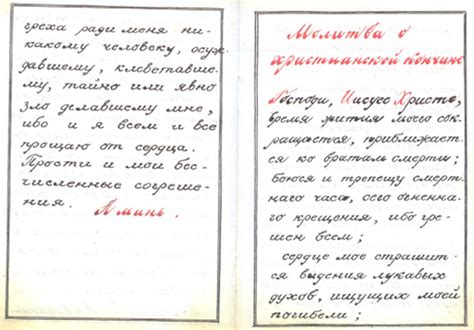 греха ради меня ни-
какому человеку, осуж-
давшему, клеветавше-
му, тайно или явно
зло делавшему мне,
ибо и я всем и все
прощаю от сердца.
Прости и мои бес-
численные согреше-
ния. Аминь.
Молитва о
христианской кончине
Господи, Иисусе Христе,
время жития моего сок-
ращается, приближает-
ся ко вратам смерти;
боюся и трепещу смерт-
наго часа, сего огненна-
го крещения, ибо гре-
шен всем;
сердце мое страшит-
ся видения лукавых
духов, ищущих моей
погибели;